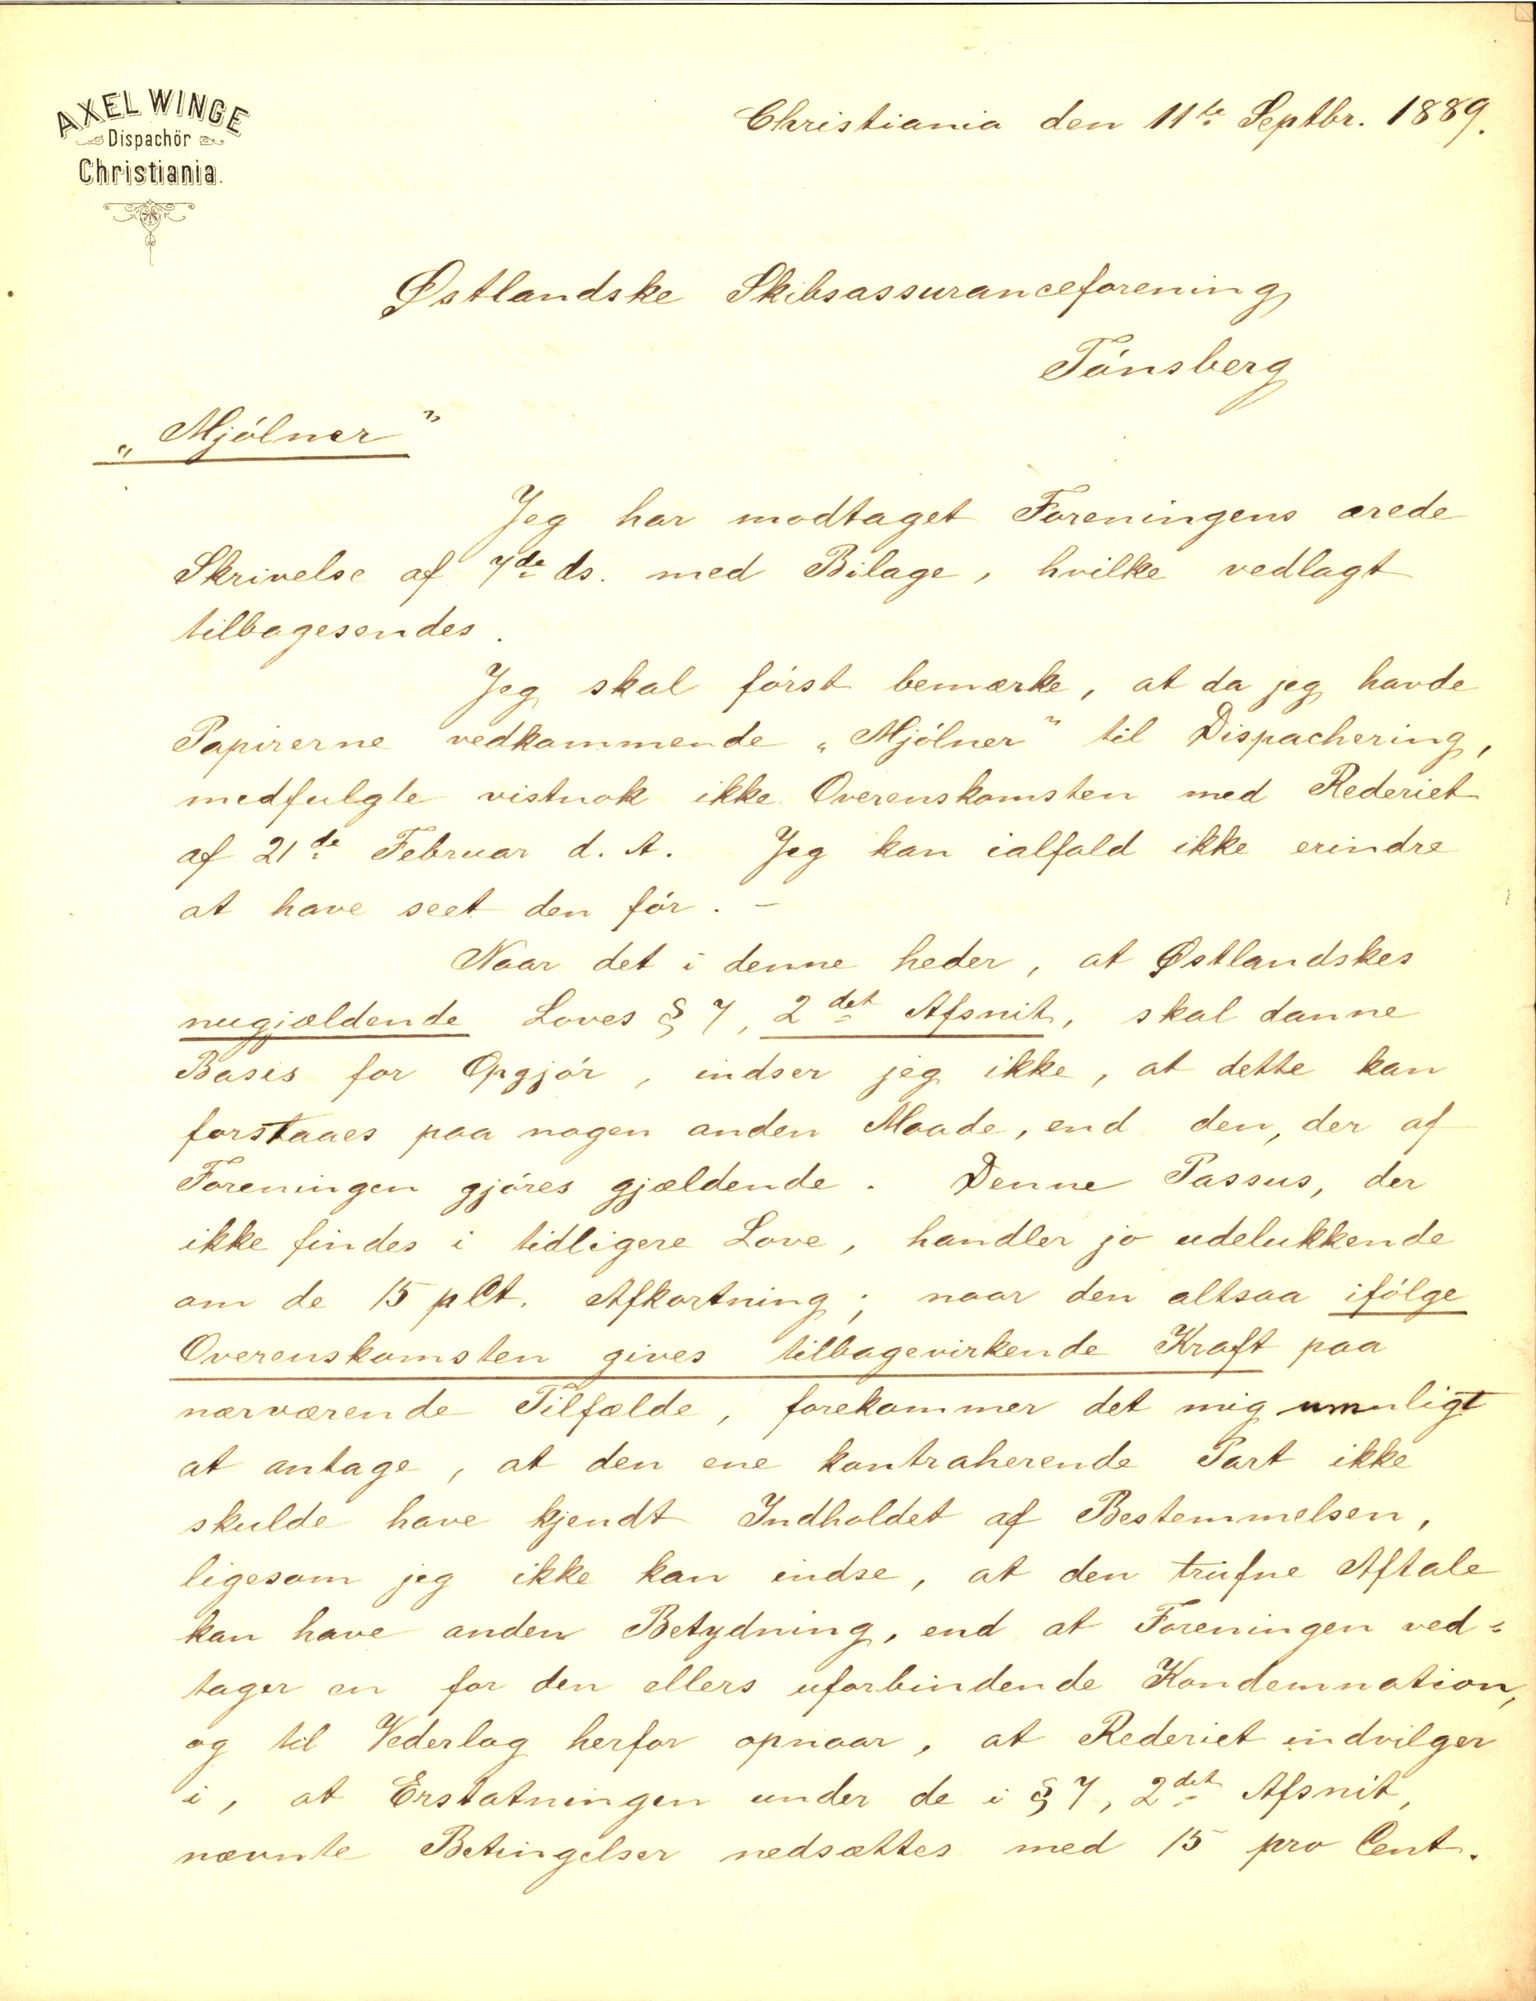 AXEL WINGE
Dispachör
Christiania.
Christiania den 11te Septbr. 1889.
Østlandske Skibsassuranceforening
Tónsberg
„Mjólner”
Jeg har modtaget Foreningens ærede
Skrivelse af 7de ds. med Bilage, hvilke vedlagt
tilbagesendes.
Jeg skal fórst bemærke, at da jeg havde
Papirerne vedkommende „Mjólner” til Dispachering,
medfulgte vistnok ikke Overenskomsten med Rederiet
af 21de Februar d. A. Jeg kan ialfald ikke erindre
at have seet den fór. –
Naar det i denne heder, at Østlandskes
nugjældende Loves § 7, 2det Afsnit, skal danne
Basis for Opgjór, indser jeg ikke, at dette kan
forstaaes paa nogen anden Maade, end den, der af
Foreningen gjóres gjældende. Denne Passus, der
ikke findes i tidligere Love, handler jo udelukkende
om de 15 pCt. Afkortning; naar den altsaa ifólge
Overenskomsten gives tilbagevirkende Kraft paa
nærværende Tilfælde, forekommer det mig umuligt
at antage, at den ene kontraherende Part ikke
skulde have kjendt Indholdet af Bestemmelsen,
ligesom jeg ikke kan indse, at den trufne Aftale
kan have anden Betydning, end at Foreningen ved-
tager en for den ellers uforbindende Kondemnation,
og til Vederlag herfor opnaar, at Rederiet indvilger
i, at Erstatningen under de i § 7, 2det Afsnit,
nævnte Betingelser nedsættes med 15 pro Cent.